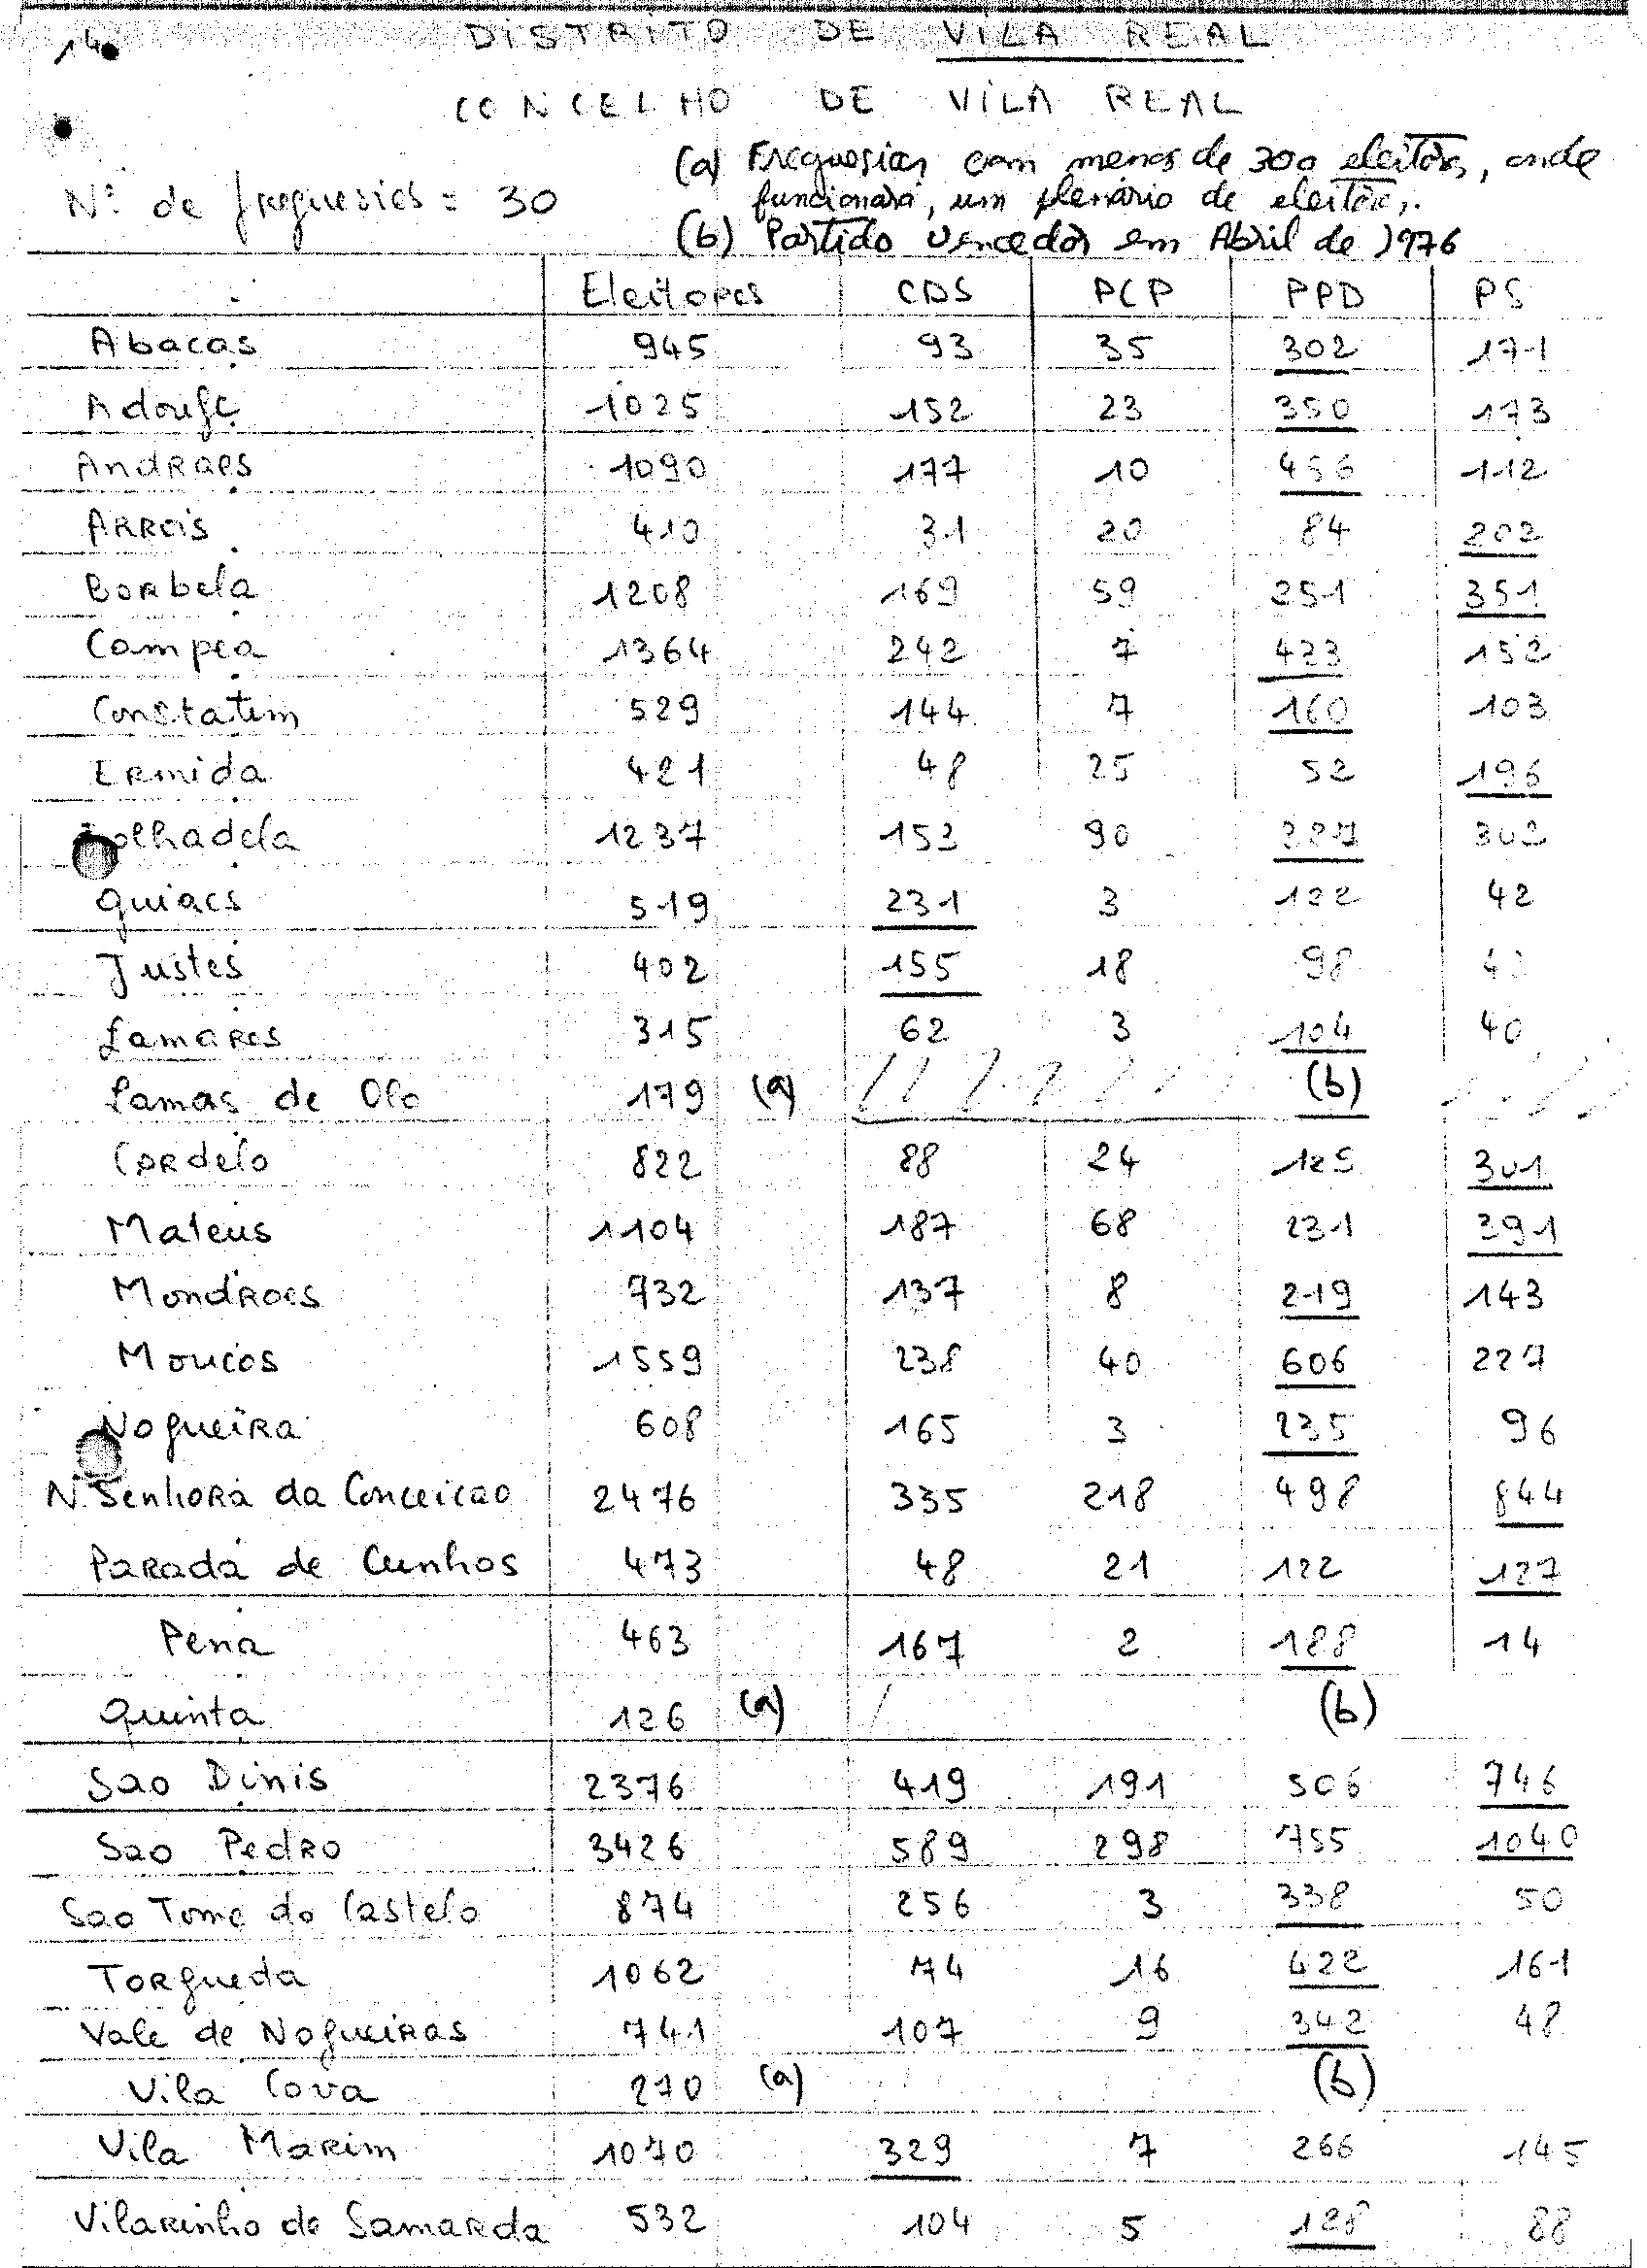 14
DISTRITO DE VILA REAL
CONCELHO DE VILA REAL
(a) Freguesias com menos de 300 eleitores, onde
Nº de freguesias = 30
funcionará, um plenário de eleitores.
(b) Partido vencedor em Abril de 1976
Eleitores CDS PCP PPD PS
Abacas 945 93 35 302 171
Adoufe 1025 152 23 350 173
Andraes 1090 177 10 456 112
Arrois 410 31 20 84 202
Borbela 1208 169 59 251 351
Campea 1364 242 7 423 152
Constatim 529 144 7 160 103
Ermida 421 48 25 52 196
olhadela 1237 153 90 302
Guiaes 519 231 3 122 42
Justes 402 155 18 98
Lamares 315 62 3 104 40
Lamas de Olo 179 (a) (b)
Lordelo 822 88 24 125 301
Mateus 1104 187 68 231 391
Mondroes 732 137 8 219 143
Moucos 1559 238 40 606 227
Nogueira 608 165 3 235 96
N. Senhora da Conceicao 2476 335 218 498 844
Parada de Cunhos 473 48 21 122 127
Pena 463 167 2 188 14
Quinta 126 (a) (b)
Sao Dinis 2376 419 191 506 746
Sao Pedro 3426 589 298 755 1040
Sao Tome do Castelo 874 256 3 338 50
Torgueda 1062 74 16 422 161
Vale de Nogueiras 741 107 9 342 48
Vila Cova 270 (a) (b)
Vila Marim 1070 329 7 266 145
Vilarinho de Samarda 532 104 5 128 88